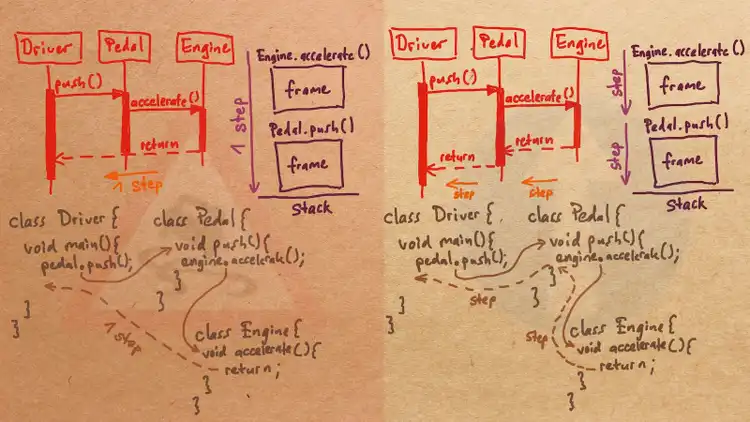 Driver Pedal Engine
push()
accelerate()
return
1 step
Engine.accelerate()
frame
1 step
Pedal.push()
frame
Stack
class Driver {
void main(){
pedal.push();
}
}
class Pedal {
void push(){
engine.accelerate();
}
}
1 step
class Engine {
void accelerate(){
return;
}
}
Driver Pedal Engine
push()
accelerate()
return
return
step step
Engine.accelerate()
step
frame
Pedal.push()
step
frame
Stack
class Driver {
void main(){
pedal.push();
}
}
class Pedal {
void push(){
engine.accelerate();
}
}
step
step
class Engine {
void accelerate(){
return;
}
}